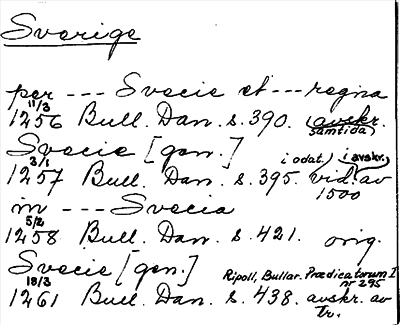 Sverige
per --- Svecie et --- regna
11/3
1256 Bull. Dan. s. 390. (avskr.
samtida)
Svecie [gen.]
3/1 i odat.) (i avskr.)
1257 Bull. Dan. s. 395. vid. av
1500
in --- Svecia
5/2
1258 Bull. Dan. s. 421. orig.
Svecie [gen.] Ripoll, Bullar. Prædicatorum I
18/3 nr 295
1261 Bull. Dan. s. 438. avskr. av